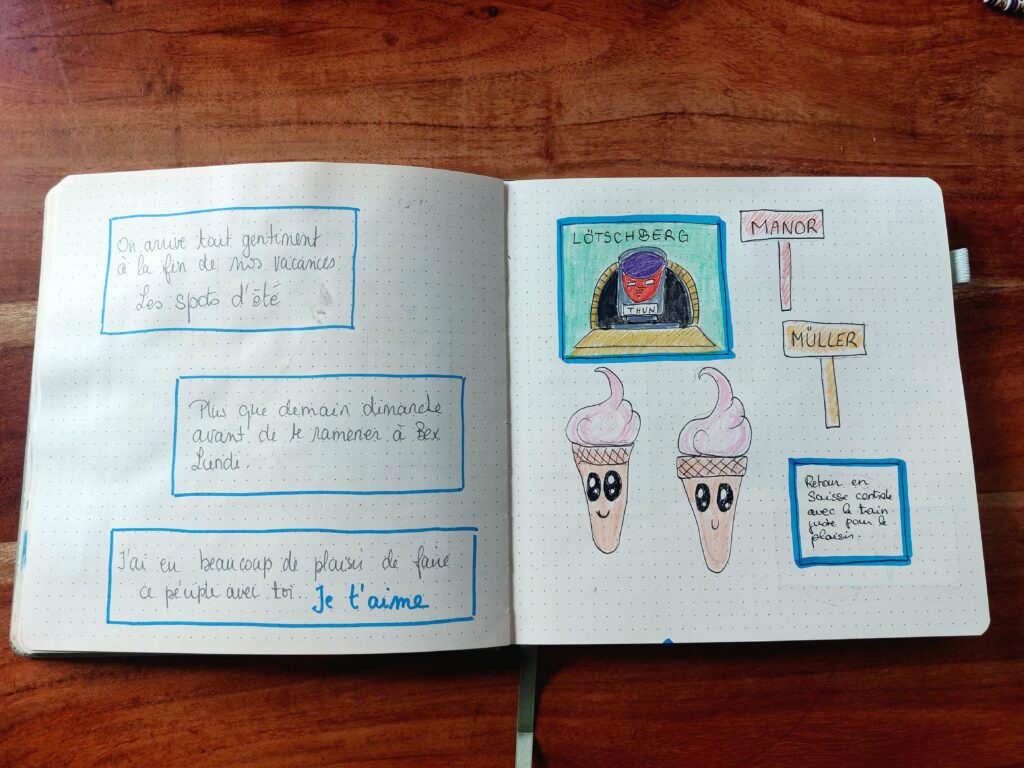 On arrive tout gentiment
à la fin de nos vacances.
Les spots d'été
Plus que demain dimanche
avant de te ramener à Bex
Lundi.
J'ai eu beaucoup de plaisir de faire
ce périple avec toi. Je t'aime
LÖTSCHBERG
THUN
MANOR
MÜLLER
Retour en
Suisse centrale
avec le train
juste pour le
plaisir.